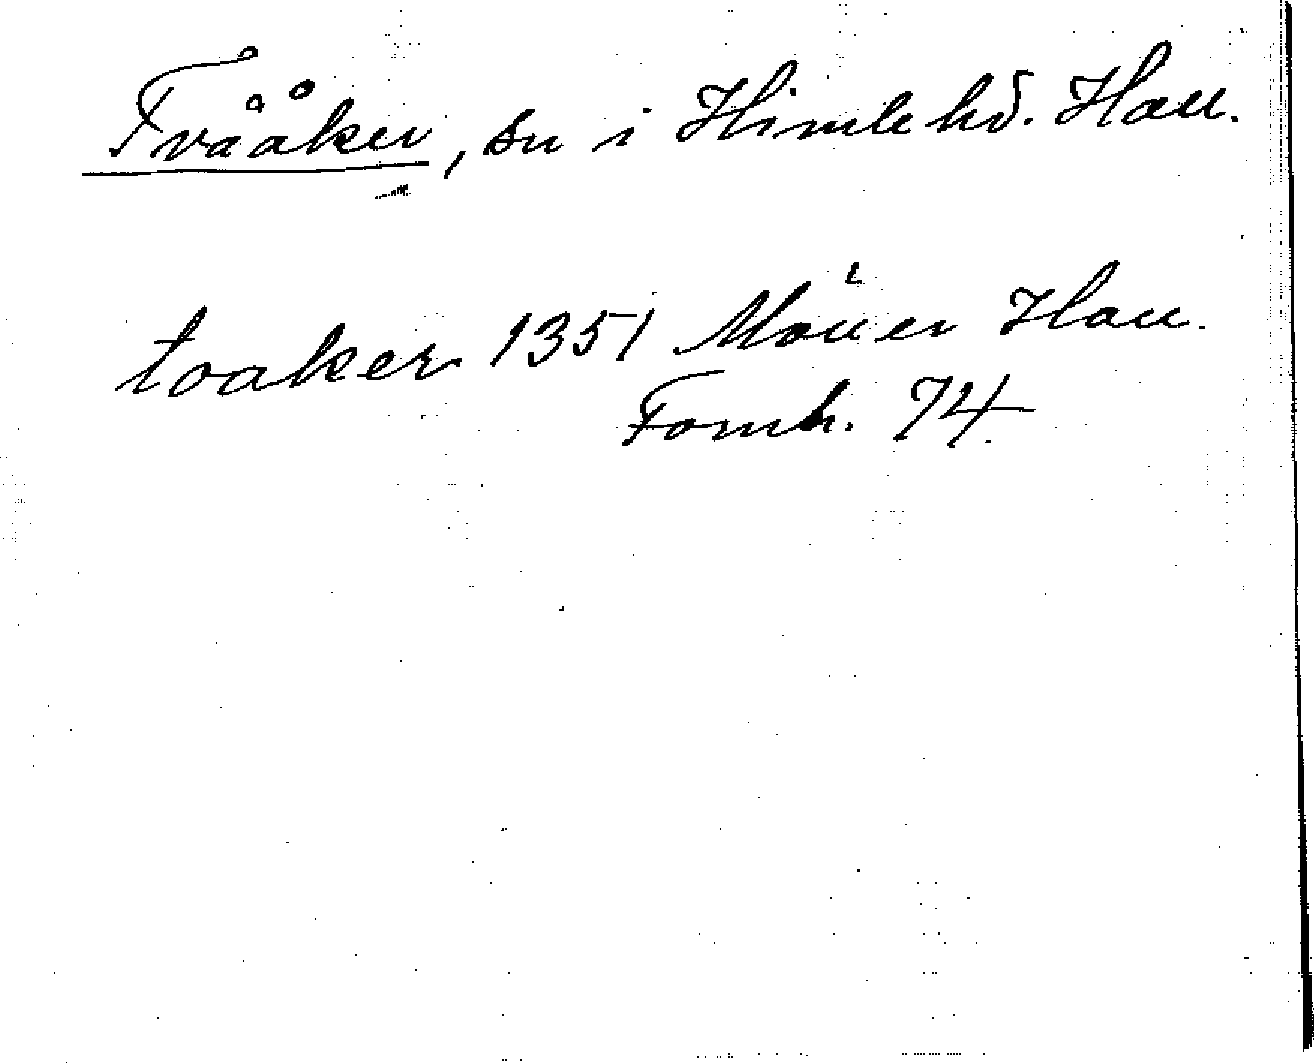 Tvååker, sn i Himle hd. Hall.
toaker 1351 Möller Hall.
Fornh. 74.